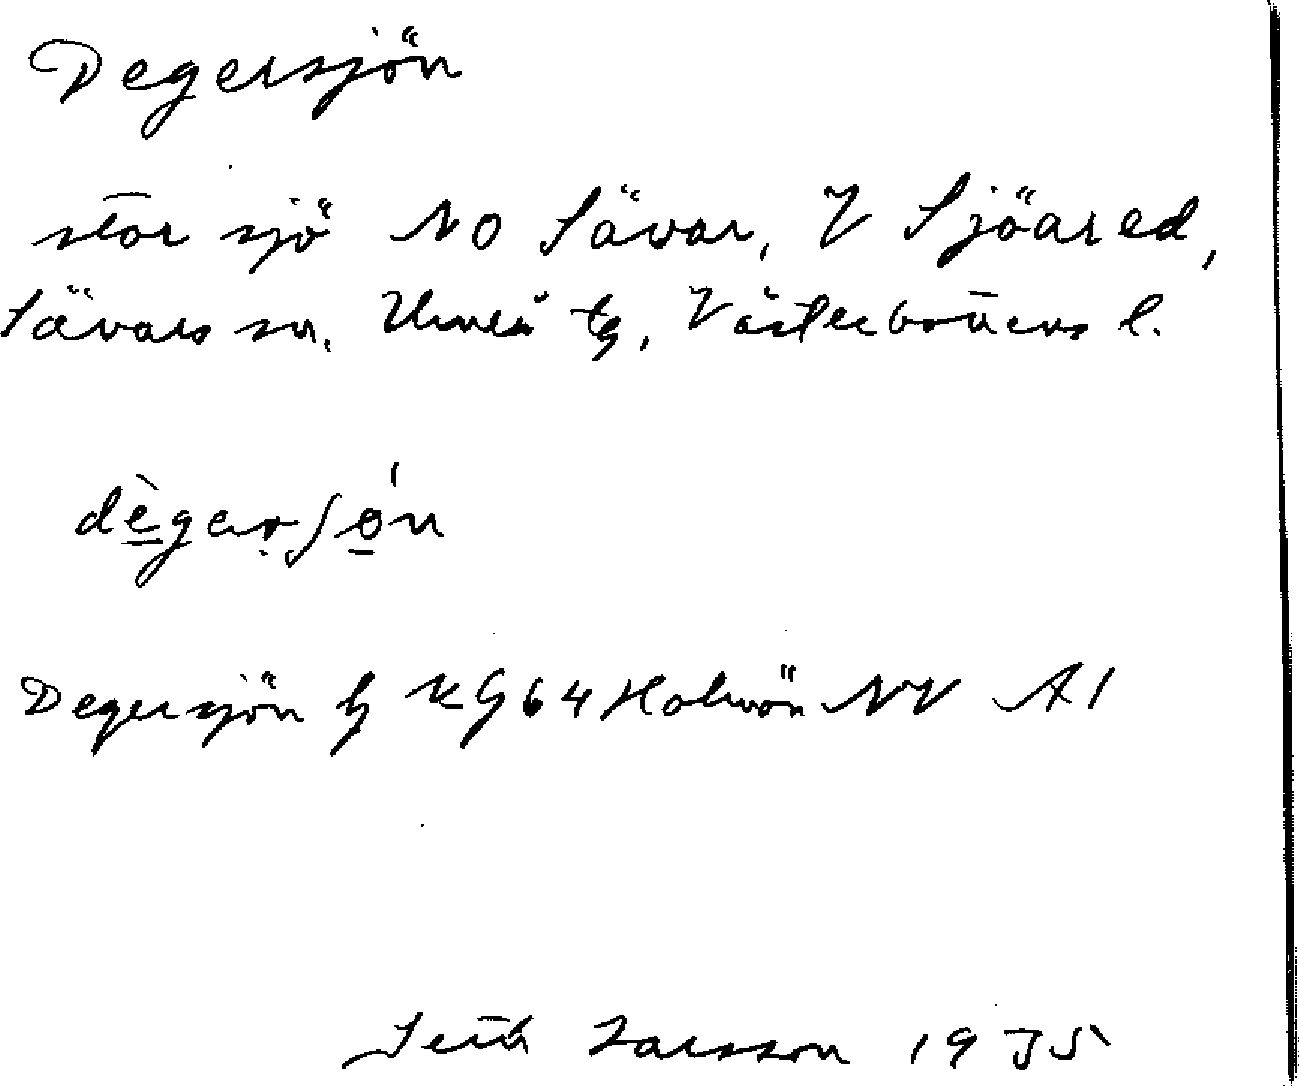 Degersjön
stor sjö NO Sävar, V Sjöared,
Sävars sn, Umeå tg, Västerbottens l.
dègarʃǿn
Degersjön KG64 Holmön NV A1
Larsson 1935